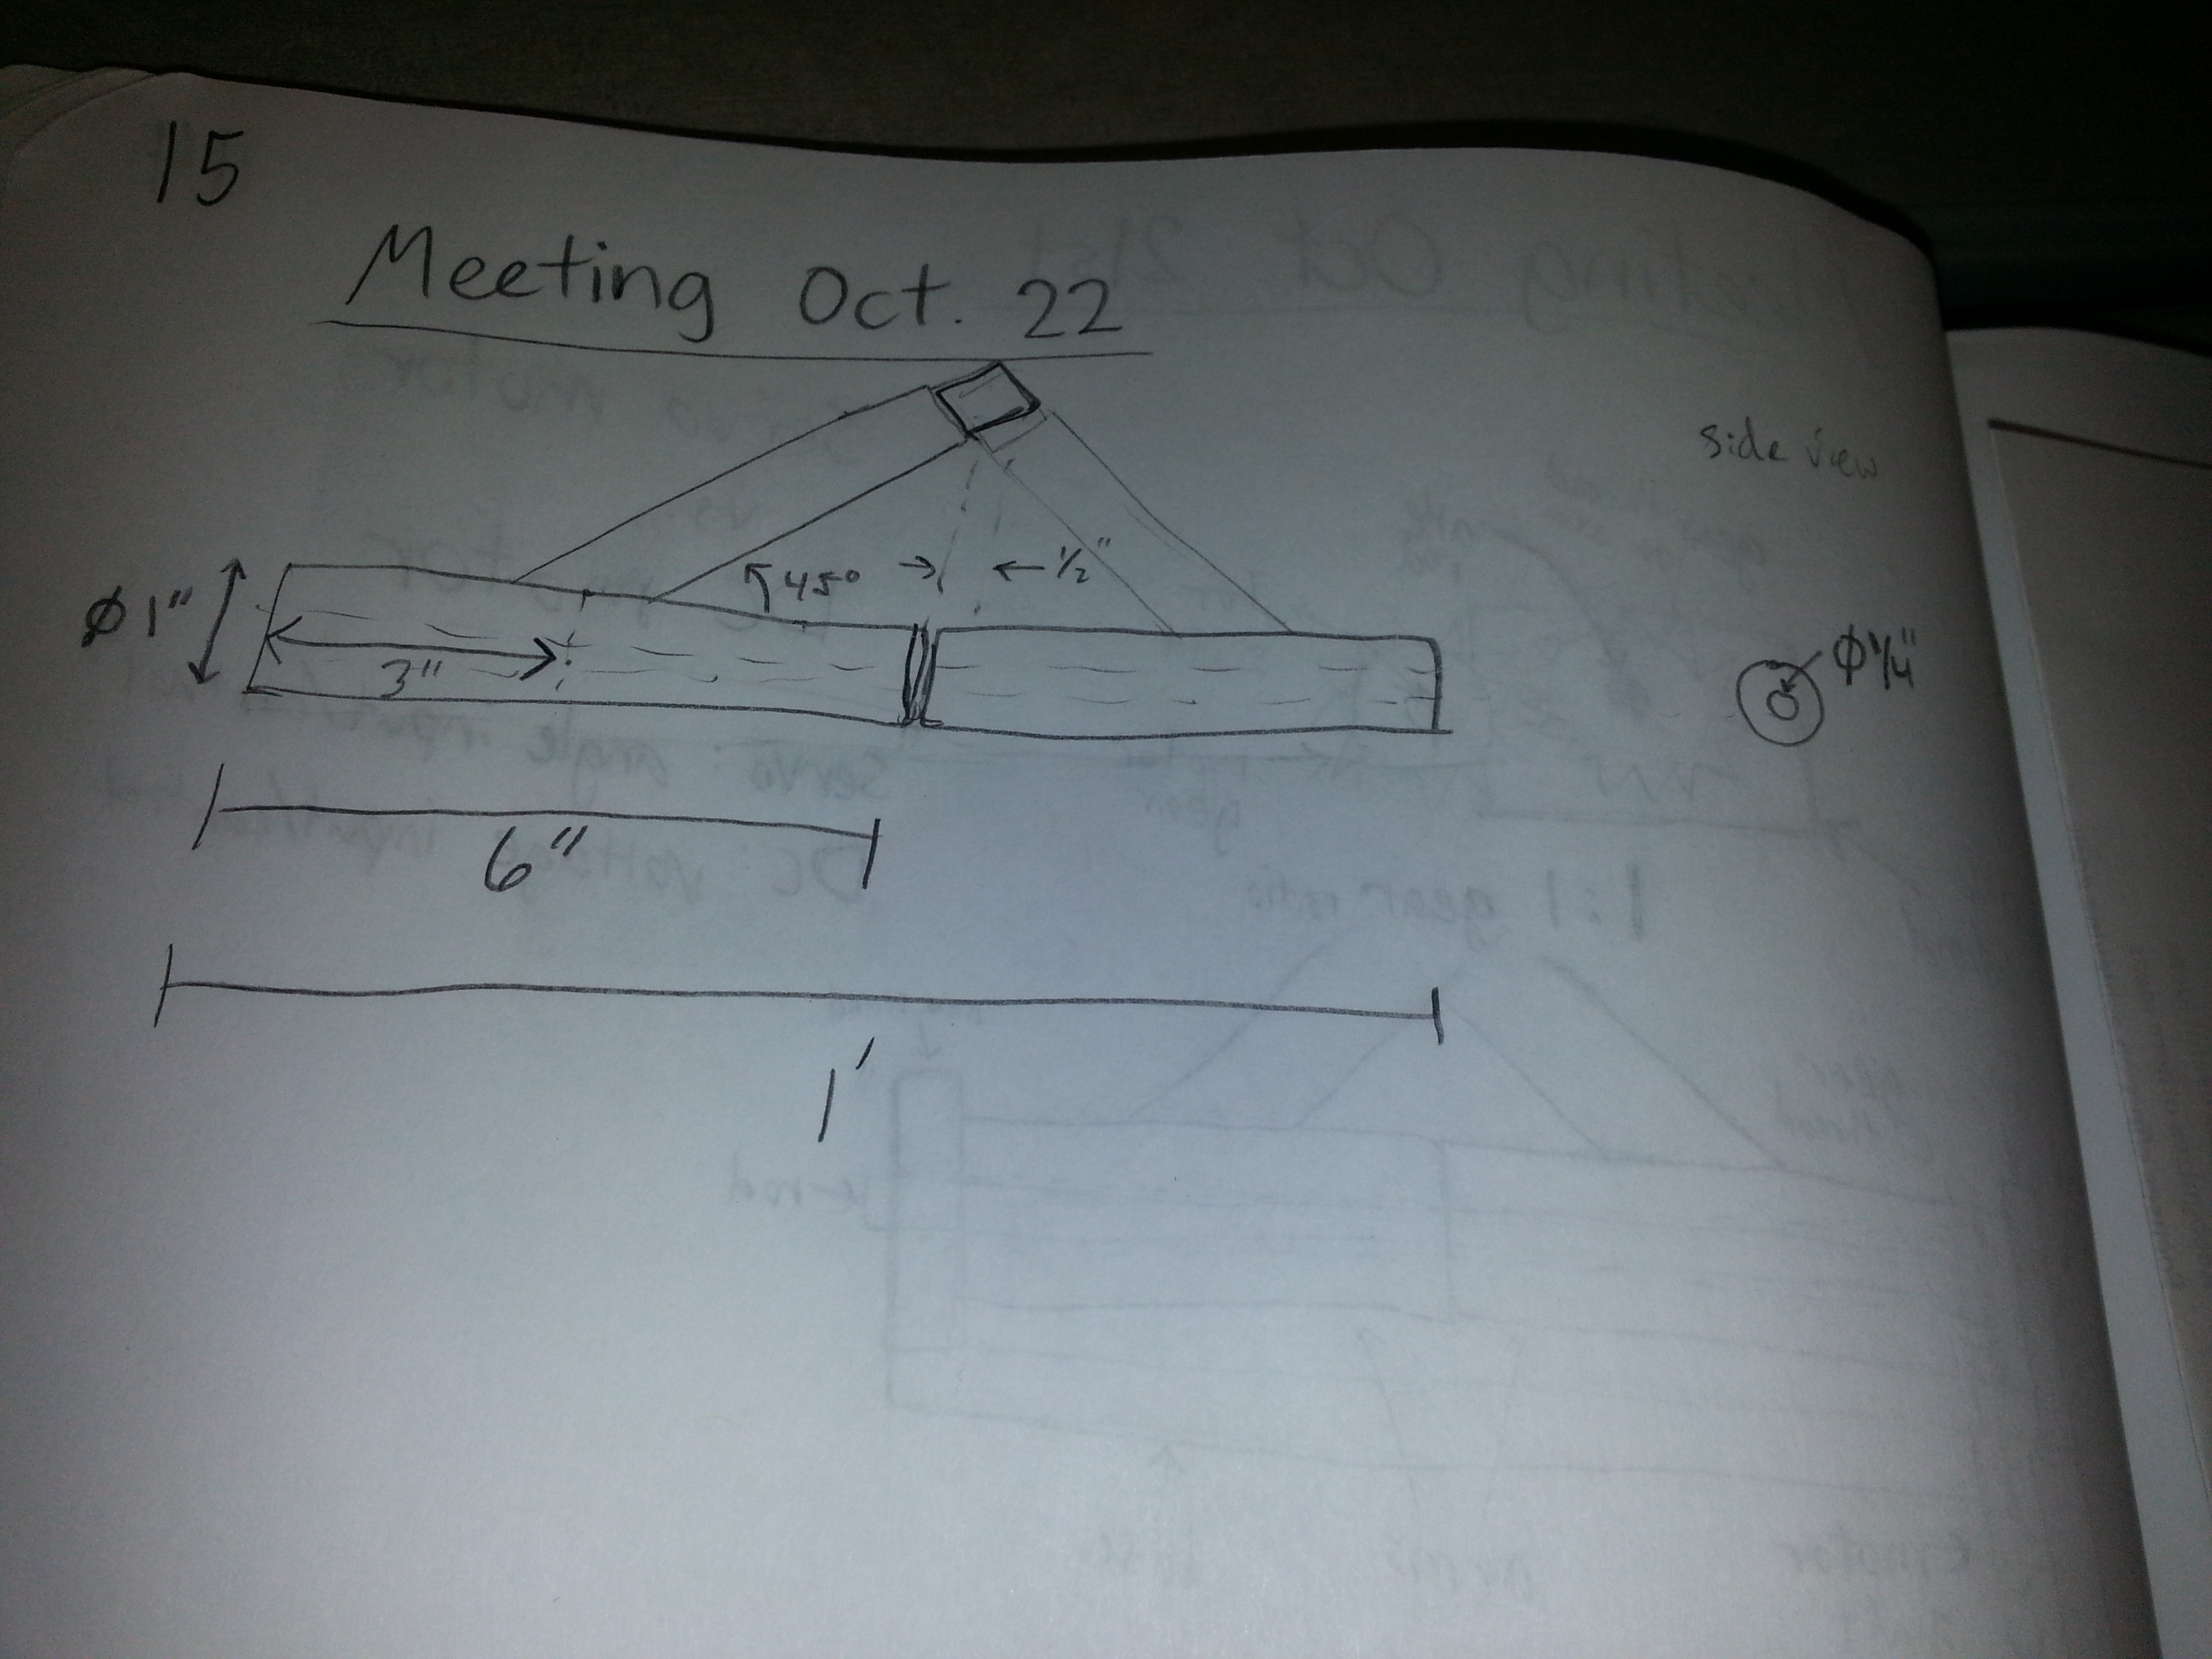 15
Meeting Oct. 22
side view
45° → ← 1/2"
φ 1"
3"
φ 1/4"
6"
1'